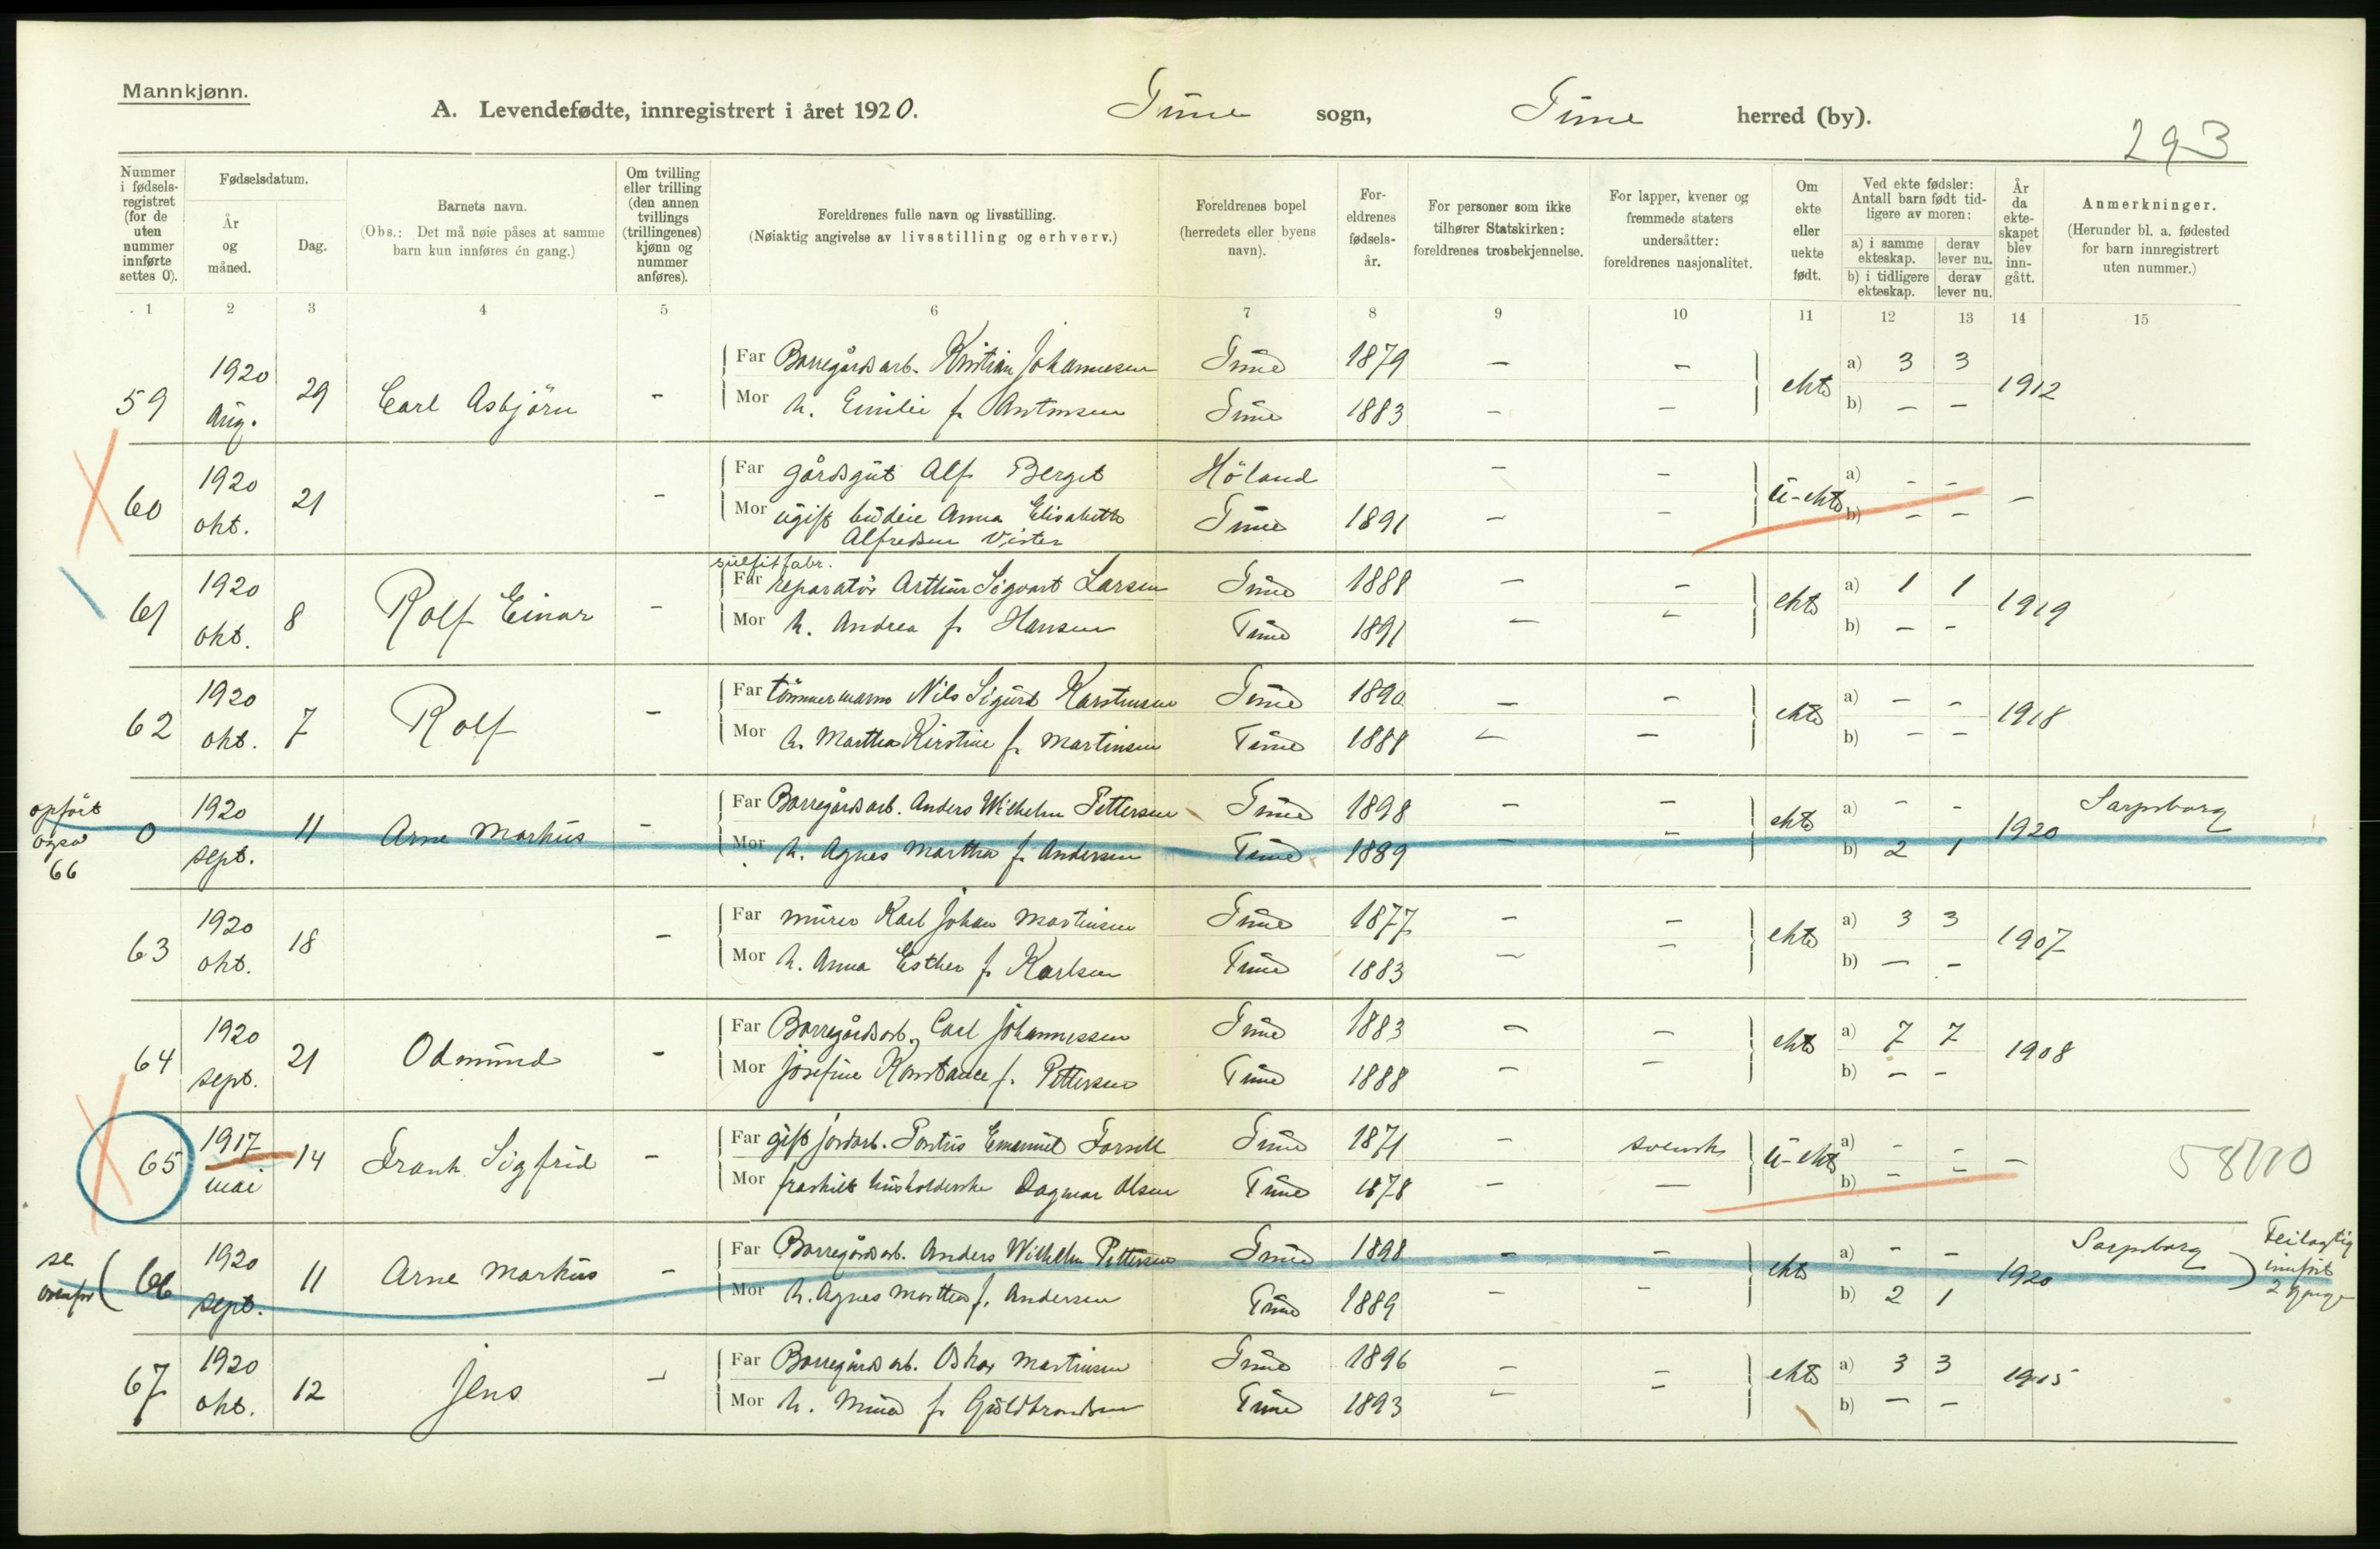 Mannkjønn.
A. Levendefødte, innregistrert i året 1920. Tune sogn, Tune herred (by).
293
Nummer i fødsels-registret (for de uten nummer innførte settes 0).
Fødselsdatum.
År og måned.
Dag.
Barnets navn.
(Obs.: Det må nøie påses at samme barn kun innføres én gang.)
Om tvilling eller trilling (den annen tvillings (trillingenes) kjønn og nummer anføres).
Foreldrenes fulle navn og livsstilling.
(Nøiaktig angivelse av livsstilling og erhverv.)
Foreldrenes bopel (herredets eller byens navn).
For-eldrenes fødsels-år.
For personer som ikke tilhører Statskirken: foreldrenes trosbekjennelse.
For lapper, kvener og fremmede staters undersåtter: foreldrenes nasjonalitet.
Om ekte eller uekte født.
Ved ekte fødsler: Antall barn født tid-ligere av moren:
a) i samme ekteskap. derav lever nu.
b) i tidligere ekteskap. derav lever nu.
År da ekte-skapet blev inn-gått.
Anmerkninger.
(Herunder bl. a. fødested for barn innregistrert uten nummer.)
1 2 3 4 5 6 7 8 9 10 11 12 13 14 15
59 1920 Aug. 29 Carl Asbjörn - Far Borregårdsarb. Kristian Johannesen Tune 1879 - - ekte a) 3 3 1912
Mor h. Emilie f. Antonsen Tune 1883 - - b) - -
60 1920 okt. 21 - Far gårdsgüt Alf Berget Höland - - ü-ekte a) - - -
Mor ügift büdeie Anna Elisabeth Tune 1891 - - b) - -
Alfredsen Vister
61 1920 okt. 8 Rolf Einar - sülfitfabr.
Far reparatör Arthur Sigvart Larsen Tune 1888 - - ekte a) 1 1 1919
Mor h. Andrea f. Hansen Tune 1891 - - b) - -
62 1920 okt. 7 Rolf - Far tömmermann Nils Sigurd Karstensen Tune 1890 - - ekte a) - - 1918
Mor h. Martha Kirstine f. Martinsen Tune 1888 - - b) - -
opfört også 66
0 1920 sept. 11 Arne Markus - Far Borregårdsarb. Anders Wilhelm Pettersen Tune 1898 - - ekte a) - - 1920 Sarpsborg
Mor h. Agnes Martha f. Andersen Tune 1889 - - b) 2 1
63 1920 okt. 18 - Far mürer Karl Johan Martinsen Tune 1877 - - ekte a) 3 3 1907
Mor h. Anna Esther f. Karlsen Tune 1883 - - b) - -
64 1920 sept. 21 Odmünd - Far Borregårdsarb. Carl Johannessen Tune 1883 - - ekte a) 7 7 1908
Mor Josefine Konstance f. Pettersen Tune 1888 - - b) - -
65 1917 mai 14 Frank Sigfrid - Far gift jordarb. Pontus Emanuel Forsell Tune 1871 - svensk ü-ekte a) - - -
Mor fraskilt hüsholderske Dagmar Olsen Tune 1878 - - b) - -
se ovenfor
( 66 1920 sept. 11 Arne Markus - Far Borregårdsarb. Anders Wilhelm Pettersen Tune 1898 - - ekte a) - - 1920 Sarpsborg )
Mor h. Agnes Martha f. Andersen Tune 1889 - - b) 2 1
Feilagtig innført 2 gange
67 1920 okt. 12 Jens - Far Borregårdsarb. Oskar Martinsen Tune 1896 - - ekte a) 3 3 1915
Mor h. Mina f. Güldbrandsen Tune 1893 - - b) - -